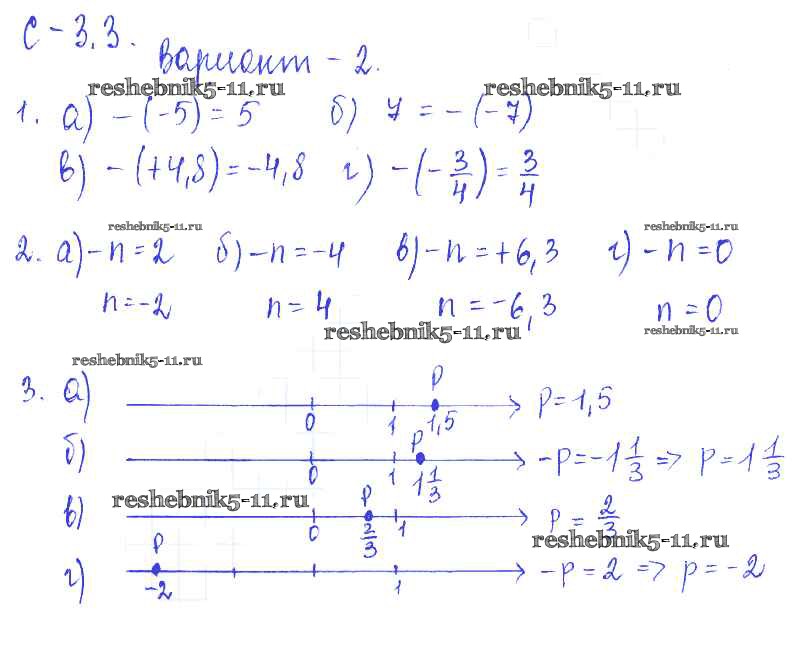 С-3.3.
Вариант - 2.
reshebnik5-11.ru reshebnik5-11.ru
1. а) -(-5) = 5 б) 7 = -(-7)
в) -(+4,8) = -4,8 г) -(-3/4) = 3/4
reshebnik5-11.ru reshebnik5-11.ru
2. а) -n = 2 б) -n = -4 в) -n = +6,3 г) -n = 0
n = -2 n = 4 n = -6,3 n = 0
reshebnik5-11.ru reshebnik5-11.ru
reshebnik5-11.ru
3. а) P
0 1 1,5 p = 1,5
б) P
0 1 1 1/3 -p = -1 1/3 => p = 1 1/3
reshebnik5-11.ru
в) P
0 2/3 1 p = 2/3
reshebnik5-11.ru
г) P
-2 1 -p = 2 => p = -2